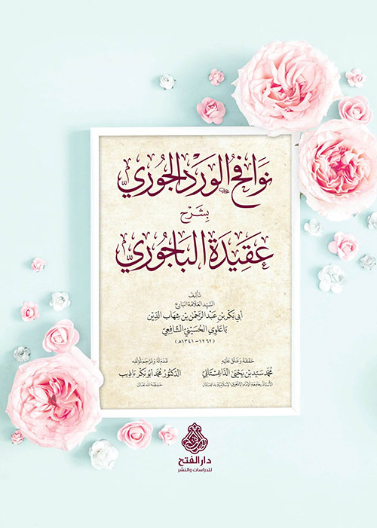 نوافح الورد الجوري
بشرح
عقيدة الباجوري
تأليف
السيد العلامة البارع
أبي بكر بن عبد الرحمن بن شهاب الدين
باعلوي الحسيني الشافعي
(١٢٦٢ - ١٣٤١ هـ)
حققه وعلق عليه
قدم له وترجم لمؤلفه
محمد سيد بن يحيى الداغستاني
الدكتور محمد أبو بكر باذيب
دار الفتح
للدراسات والنشر